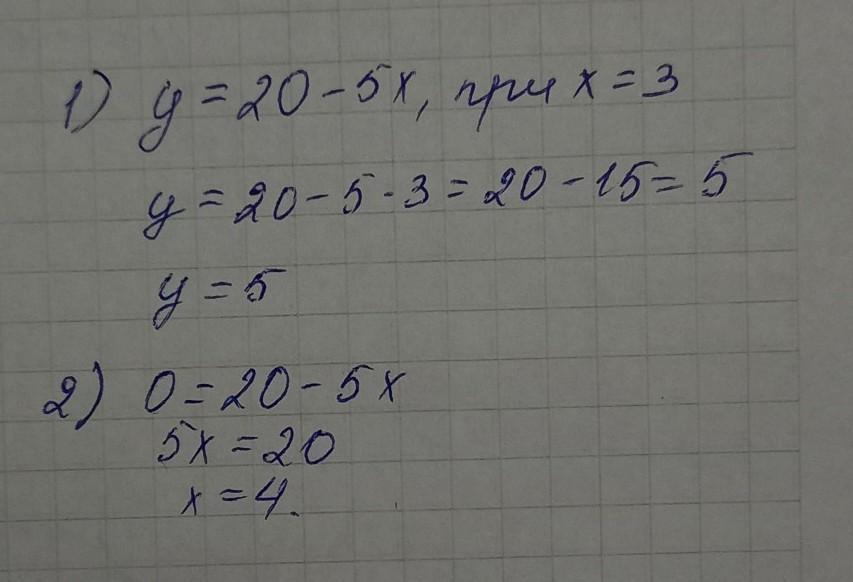 1) y = 20 - 5x, при x = 3
y = 20 - 5 · 3 = 20 - 15 = 5
y = 5
2) 0 = 20 - 5x
5x = 20
x = 4.